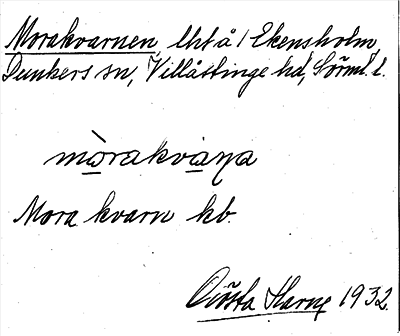 Morakvarnen, lht å / Ekensholm,
Dunkers sn, Villåttinge hd, Sörml. l.
mòrakvaṇa
Mora kvarn kb.
Gösta 1932.